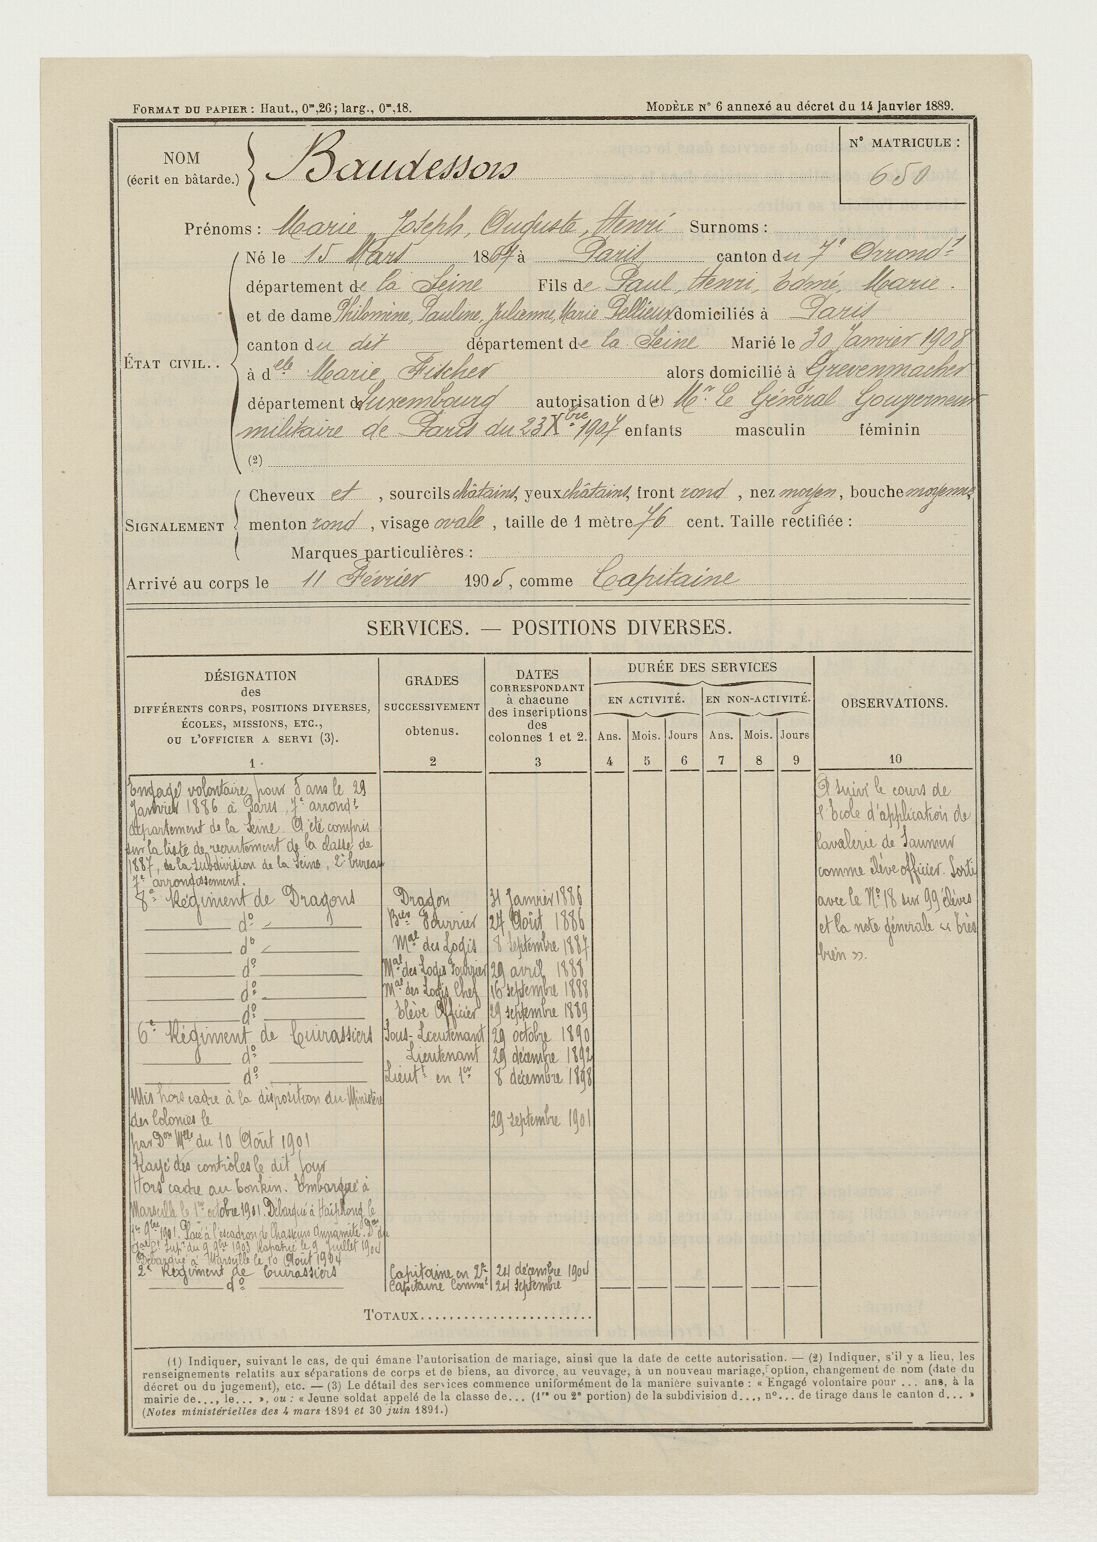 FORMAT DU PAPIER : Haut., 0m,26; larg., 0m,18.
MODÈLE N° 6 annexé au décret du 14 janvier 1889.
NOM
(écrit en bâtarde.)
Baudesson
N° MATRICULE :
650
Prénoms : Marie, Joseph, Auguste, Henri Surnoms :
ÉTAT CIVIL..
Né le 15 Mars 1867 à Paris canton du 7e Arrondt
département de la Seine Fils de Paul, Henri, Edmé, Marie.
et de dame Philomine, Pauline, Julienne, Marie Dellieux domiciliés à Paris
canton du dit département de la Seine Marié le 30 Janvier 1908
à delle Marie Fischer alors domicilié à Grevenmacher
département de Luxembourg autorisation d (1) Mr le Général Gouverneur
militaire de Paris du 23 Xbre 1907 enfants masculin féminin
(2)
SIGNALEMENT
Cheveux et , sourcils châtains, yeux châtains, front rond , nez moyen , bouche moyenne,
menton rond , visage ovale , taille de 1 mètre 76 cent. Taille rectifiée :
Marques particulières :
Arrivé au corps le 11 Février 1905, comme Capitaine
SERVICES. — POSITIONS DIVERSES.
DÉSIGNATION
des
DIFFÉRENTS CORPS, POSITIONS DIVERSES,
ÉCOLES, MISSIONS, ETC.,
OU L'OFFICIER A SERVI (3).
1
GRADES
SUCCESSIVEMENT
obtenus.
2
DATES
CORRESPONDANT
à chacune
des inscriptions
des
colonnes 1 et 2.
3
DURÉE DES SERVICES
EN ACTIVITÉ. EN NON-ACTIVITÉ.
Ans. Mois. Jours Ans. Mois. Jours
4 5 6 7 8 9
OBSERVATIONS.
10
Engagé volontaire pour 5 ans le 29
Janvier 1886 à Paris, 7e arrondt
département de la Seine. A été compris
sur la liste de recrutement de la classe de
1887, de la subdivision de la Seine, 2e bureau
7e arrondissement.
8e Régiment de Dragons Dragon 31 Janvier 1886
do Bier Fourrier 27 Août 1886
do Mal des Logis 8 septembre 1887
do Mal des Logis Fourrier 29 avril 1888
do Mal des Logis Chef 16 septembre 1888
do Elève Officier 29 septembre 1889
6e Régiment de Cuirassiers Sous-Lieutenant 29 octobre 1890
do Lieutenant 29 décembre 1892
do Lieutt en 1er 8 décembre 1898
Mis hors cadre à la disposition du Ministère
des Colonies le 29 septembre 1901
par Don Mlle du 10 Août 1901
Rayé des contrôles le dit jour
Hors cadre au Tonkin. Embarqué à
Marseille le 1er octobre 1901. Débarqué à Haïphong le
9bre 1901. Placé à l'escadron de Chasseurs Annamite. Don du
du 9 9bre 1903 Rapatrié le 9 Juillet 1904
Débarqué à Marseille le 10 Août 1904
2e Régiment de Cuirassiers Capitaine en 2e 24 décembre 1904
do Capitaine Commt 24 septembre
A suivi le cours de
l'Ecole d'application de
Cavalerie de Saumur
comme élève officier. Sorti
avec le No 18 sur 99 élèves
et la note générale « très
bien ».
TOTAUX
(1) Indiquer, suivant le cas, de qui émane l'autorisation de mariage, ainsi que la date de cette autorisation. — (2) Indiquer, s'il y a lieu, les
renseignements relatifs aux séparations de corps et de biens, au divorce, au veuvage, à un nouveau mariage, option, changement de nom (date du
décret ou du jugement), etc. — (3) Le détail des services commence uniformément de la manière suivante : « Engagé volontaire pour ... ans, à la
mairie de..., le... », ou : « Jeune soldat appelé de la classe de... (1re ou 2e portion) de la subdivision d..., n°... de tirage dans le canton d... »
(Notes ministérielles des 4 mars 1891 et 30 juin 1891.)